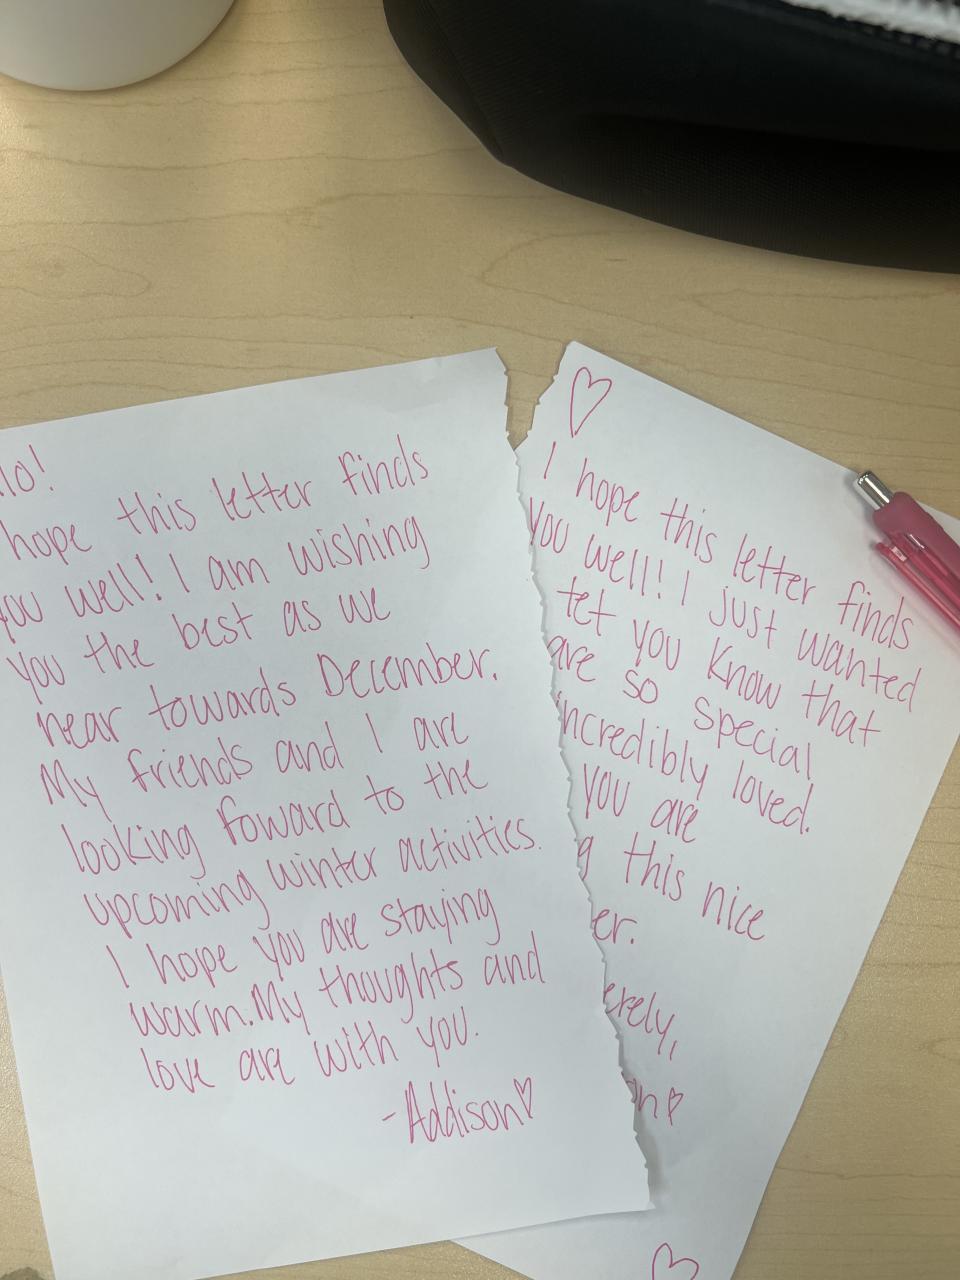 lo!
hope this letter finds
you well! I am wishing
you the best as we
near towards December.
My friends and I are
looking foward to the
upcoming winter activities.
I hope you are staying
warm. My thoughts and
love are with you.
-Addison♡
♡
I hope this letter finds
you well! I just wanted
tet you know that
are so special
incredibly loved.
you are
g this nice
er.
erely,
on♡
♡